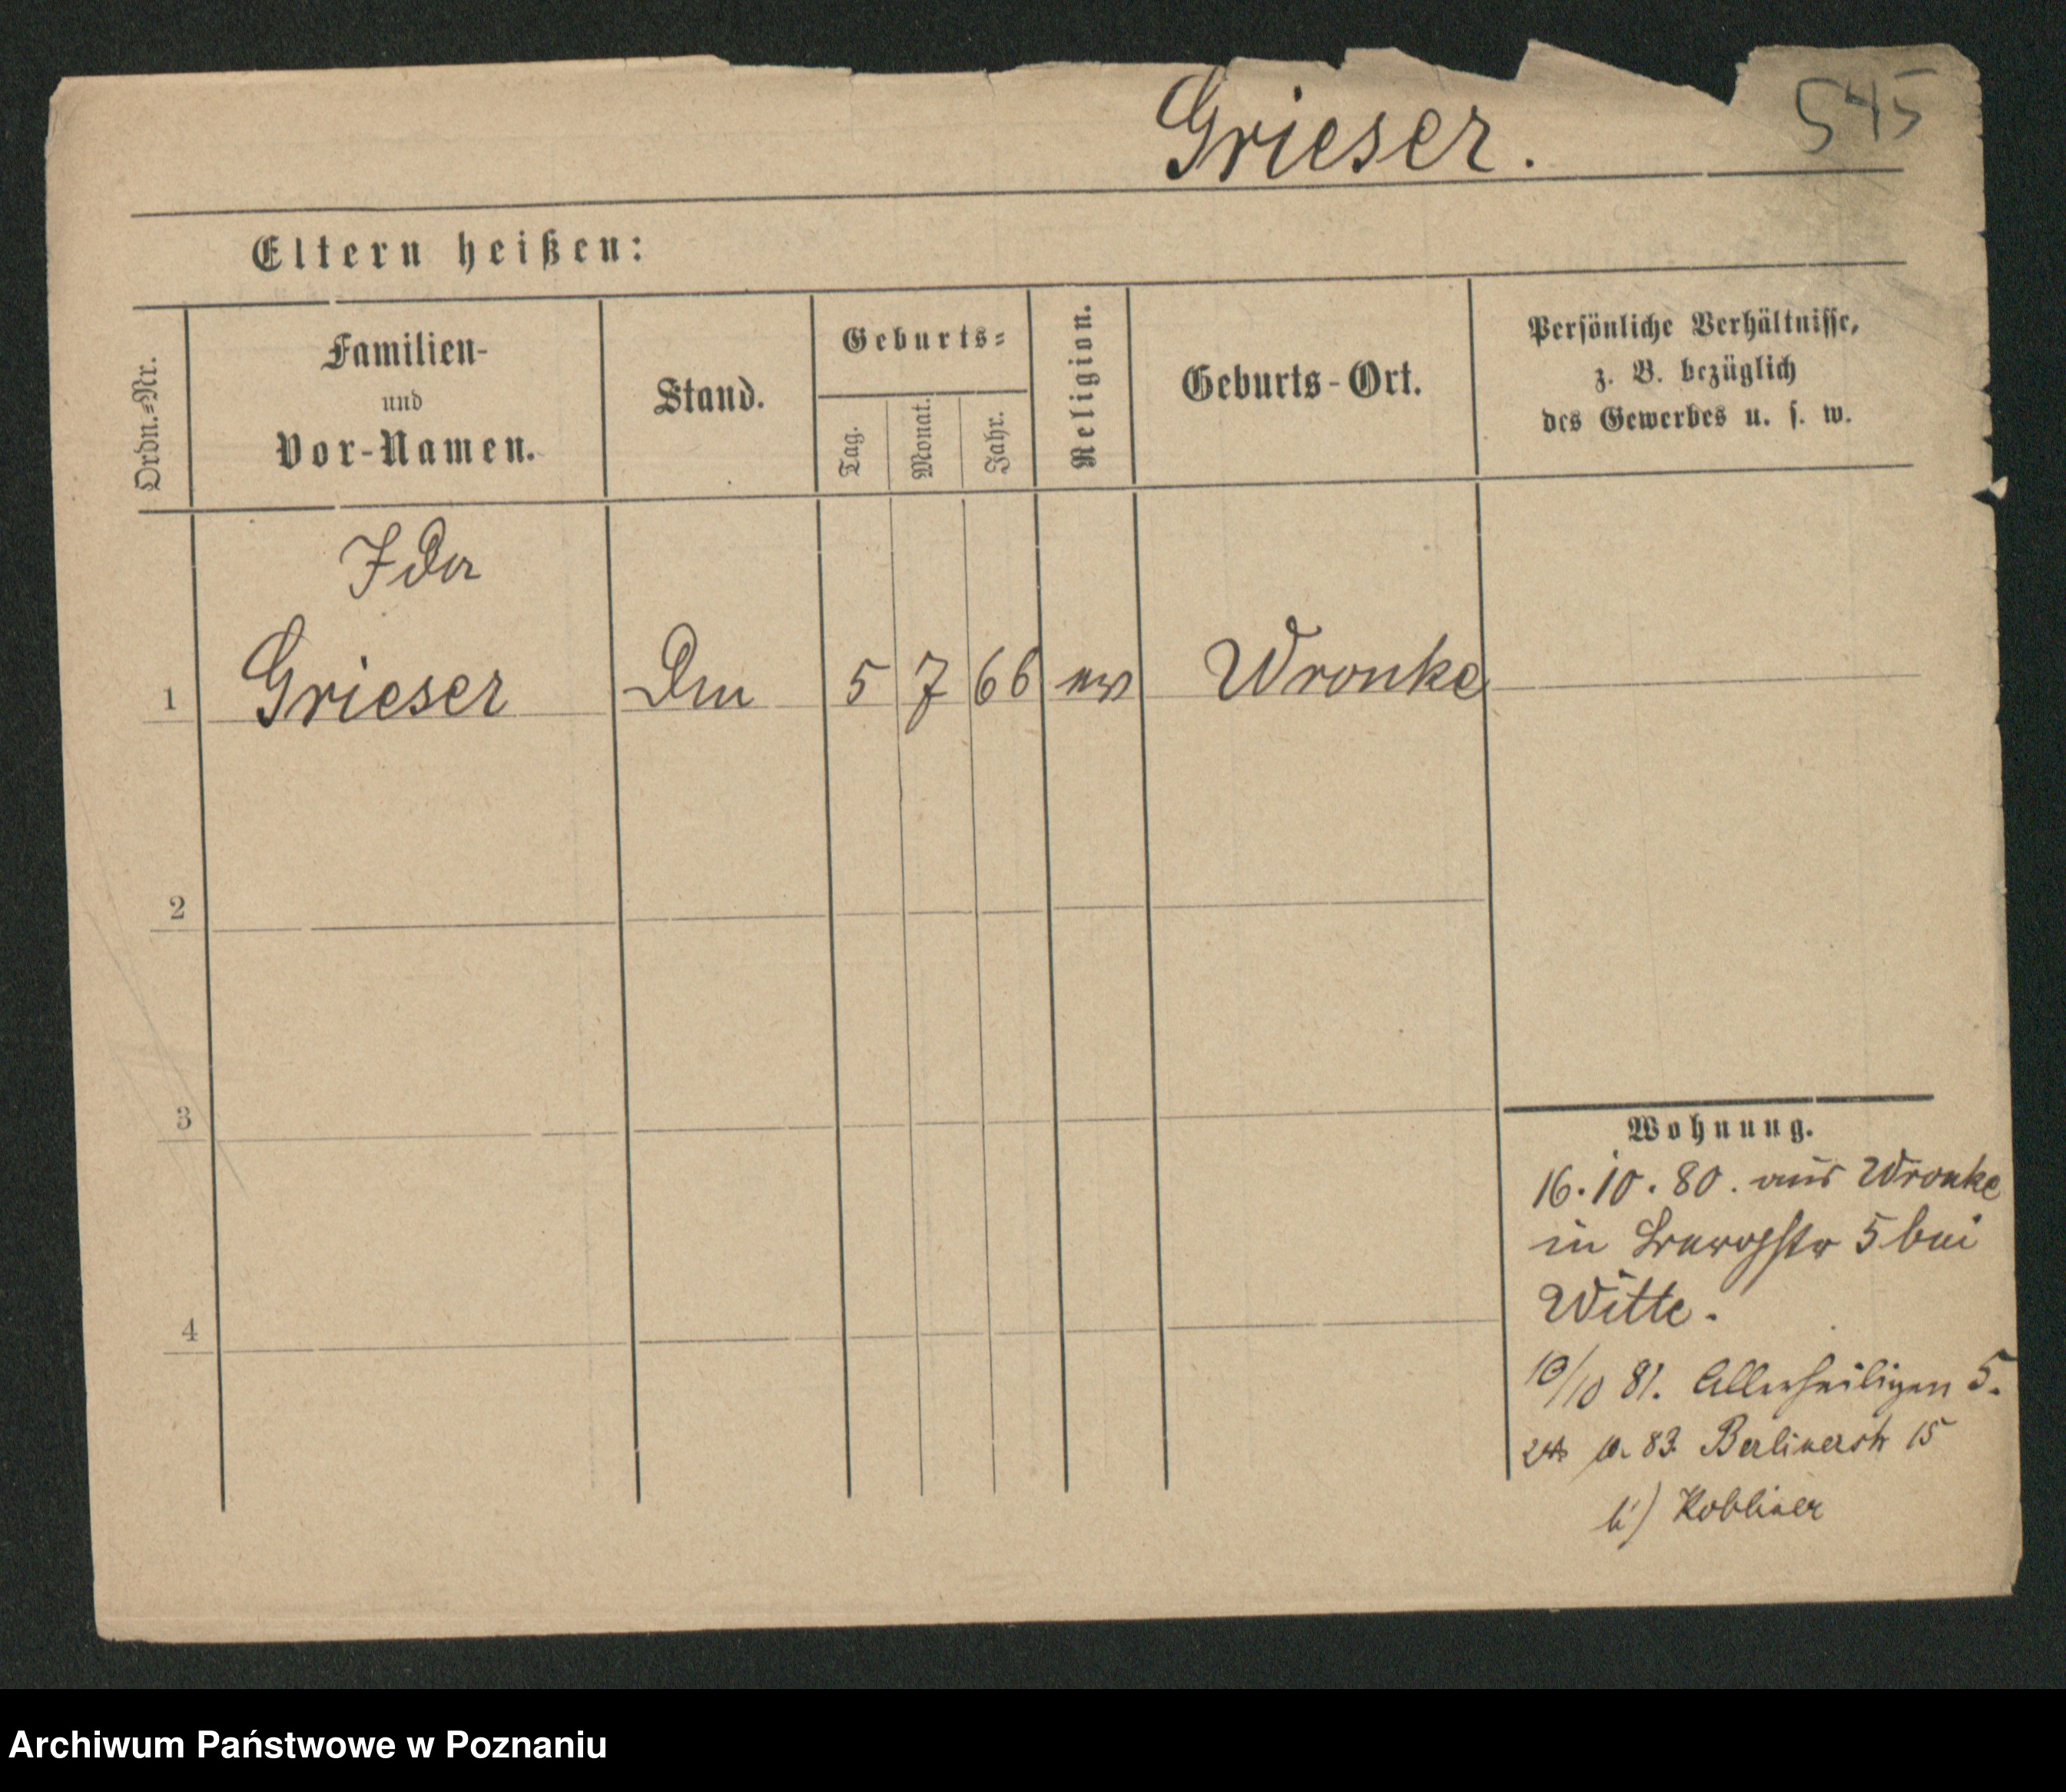 545
Grieser.
Eltern heißen:
Ordn.-Nr.
Familien-
und
Vor-Namen.
Stand.
Geburts-
Tag.
Monat.
Jahr.
Religion.
Geburts-Ort.
Persönliche Verhältnisse,
z. B. bezüglich
des Gewerbes u. s. w.
Ida
1 Grieser Dm 5 7 66 ev Wronke
2
3
4
Wohnung.
16.10.80. aus Wronke
in 5 bei
Witte.
10/10 81. Allerheiligen 5.
10. 83. Berlinerstr 15
b/ Kobliner
Archiwum Państwowe w Poznaniu